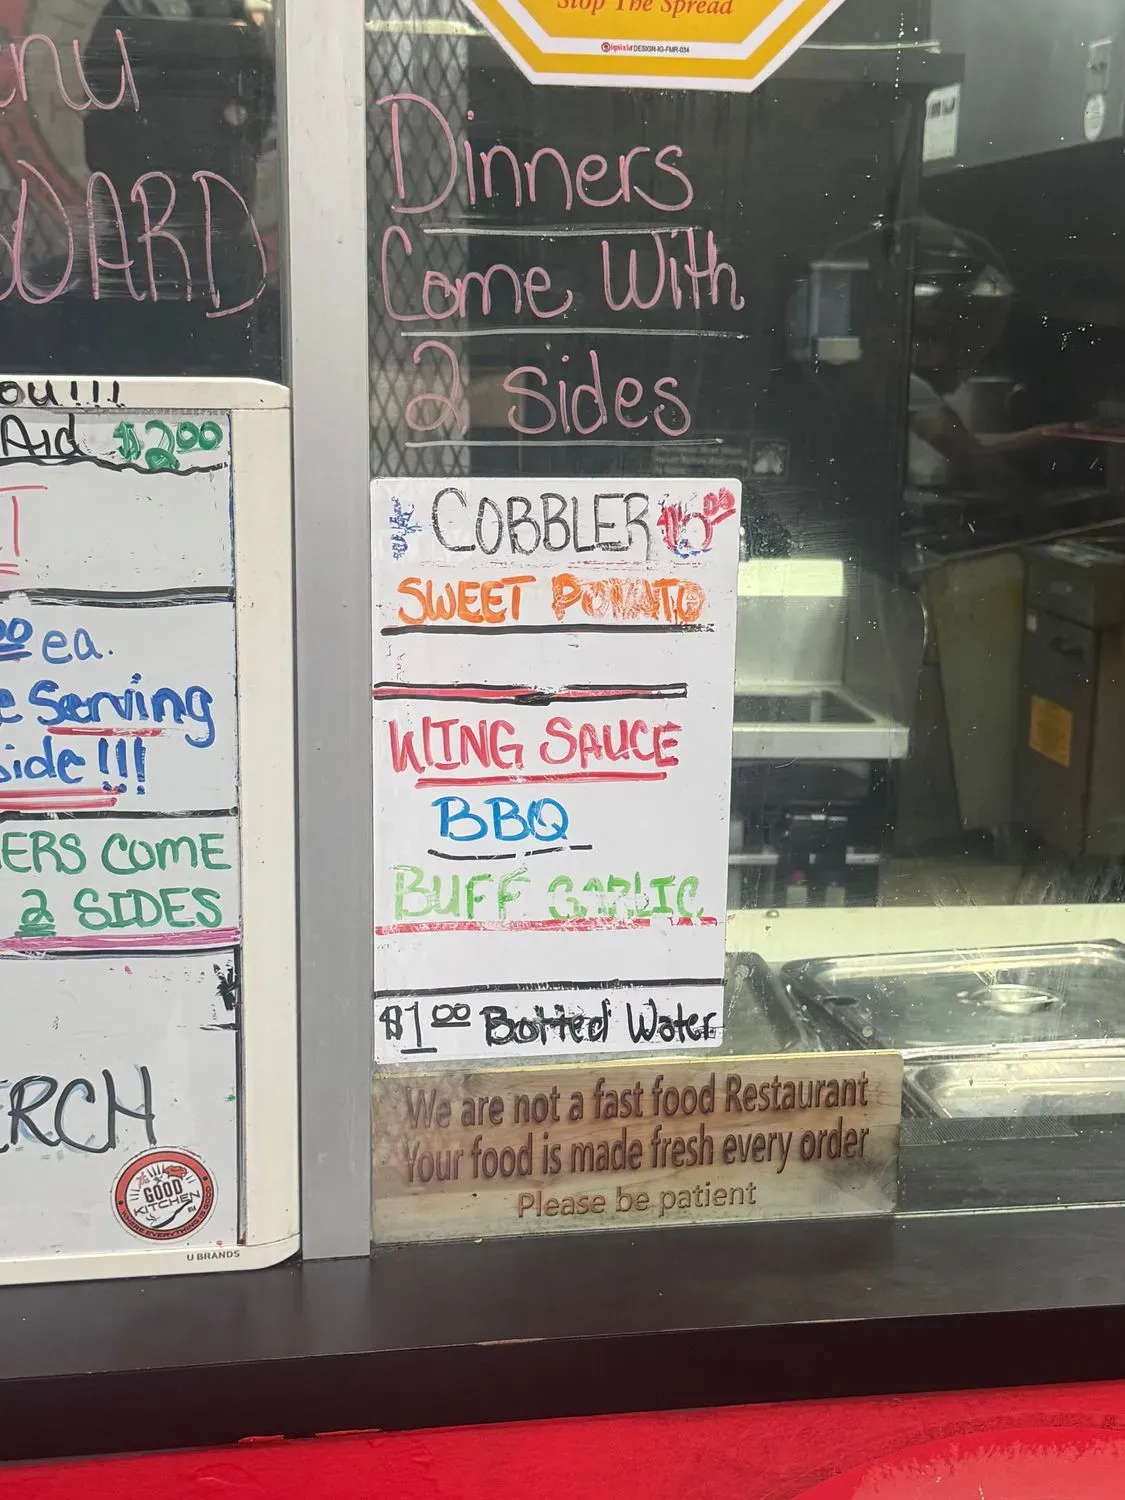 Stop The Spread
ignixia DESIGN-IG-FMR-034
Dinners
Come With
2 Sides
COBBLER
SWEET POTATO
WING SAUCE
BBQ
BUFF GARLIC
$1.00 Bottled Water
We are not a fast food Restaurant
Your food is made fresh every order
Please be patient
nu
OARD
OU!!!
Aid $2.00
T
00 ea.
e Serving
side!!!
ERS COME
2 SIDES
ERCH
GOOD
KITCHEN
WHERE EVERYTHING IS GOOD
U BRANDS